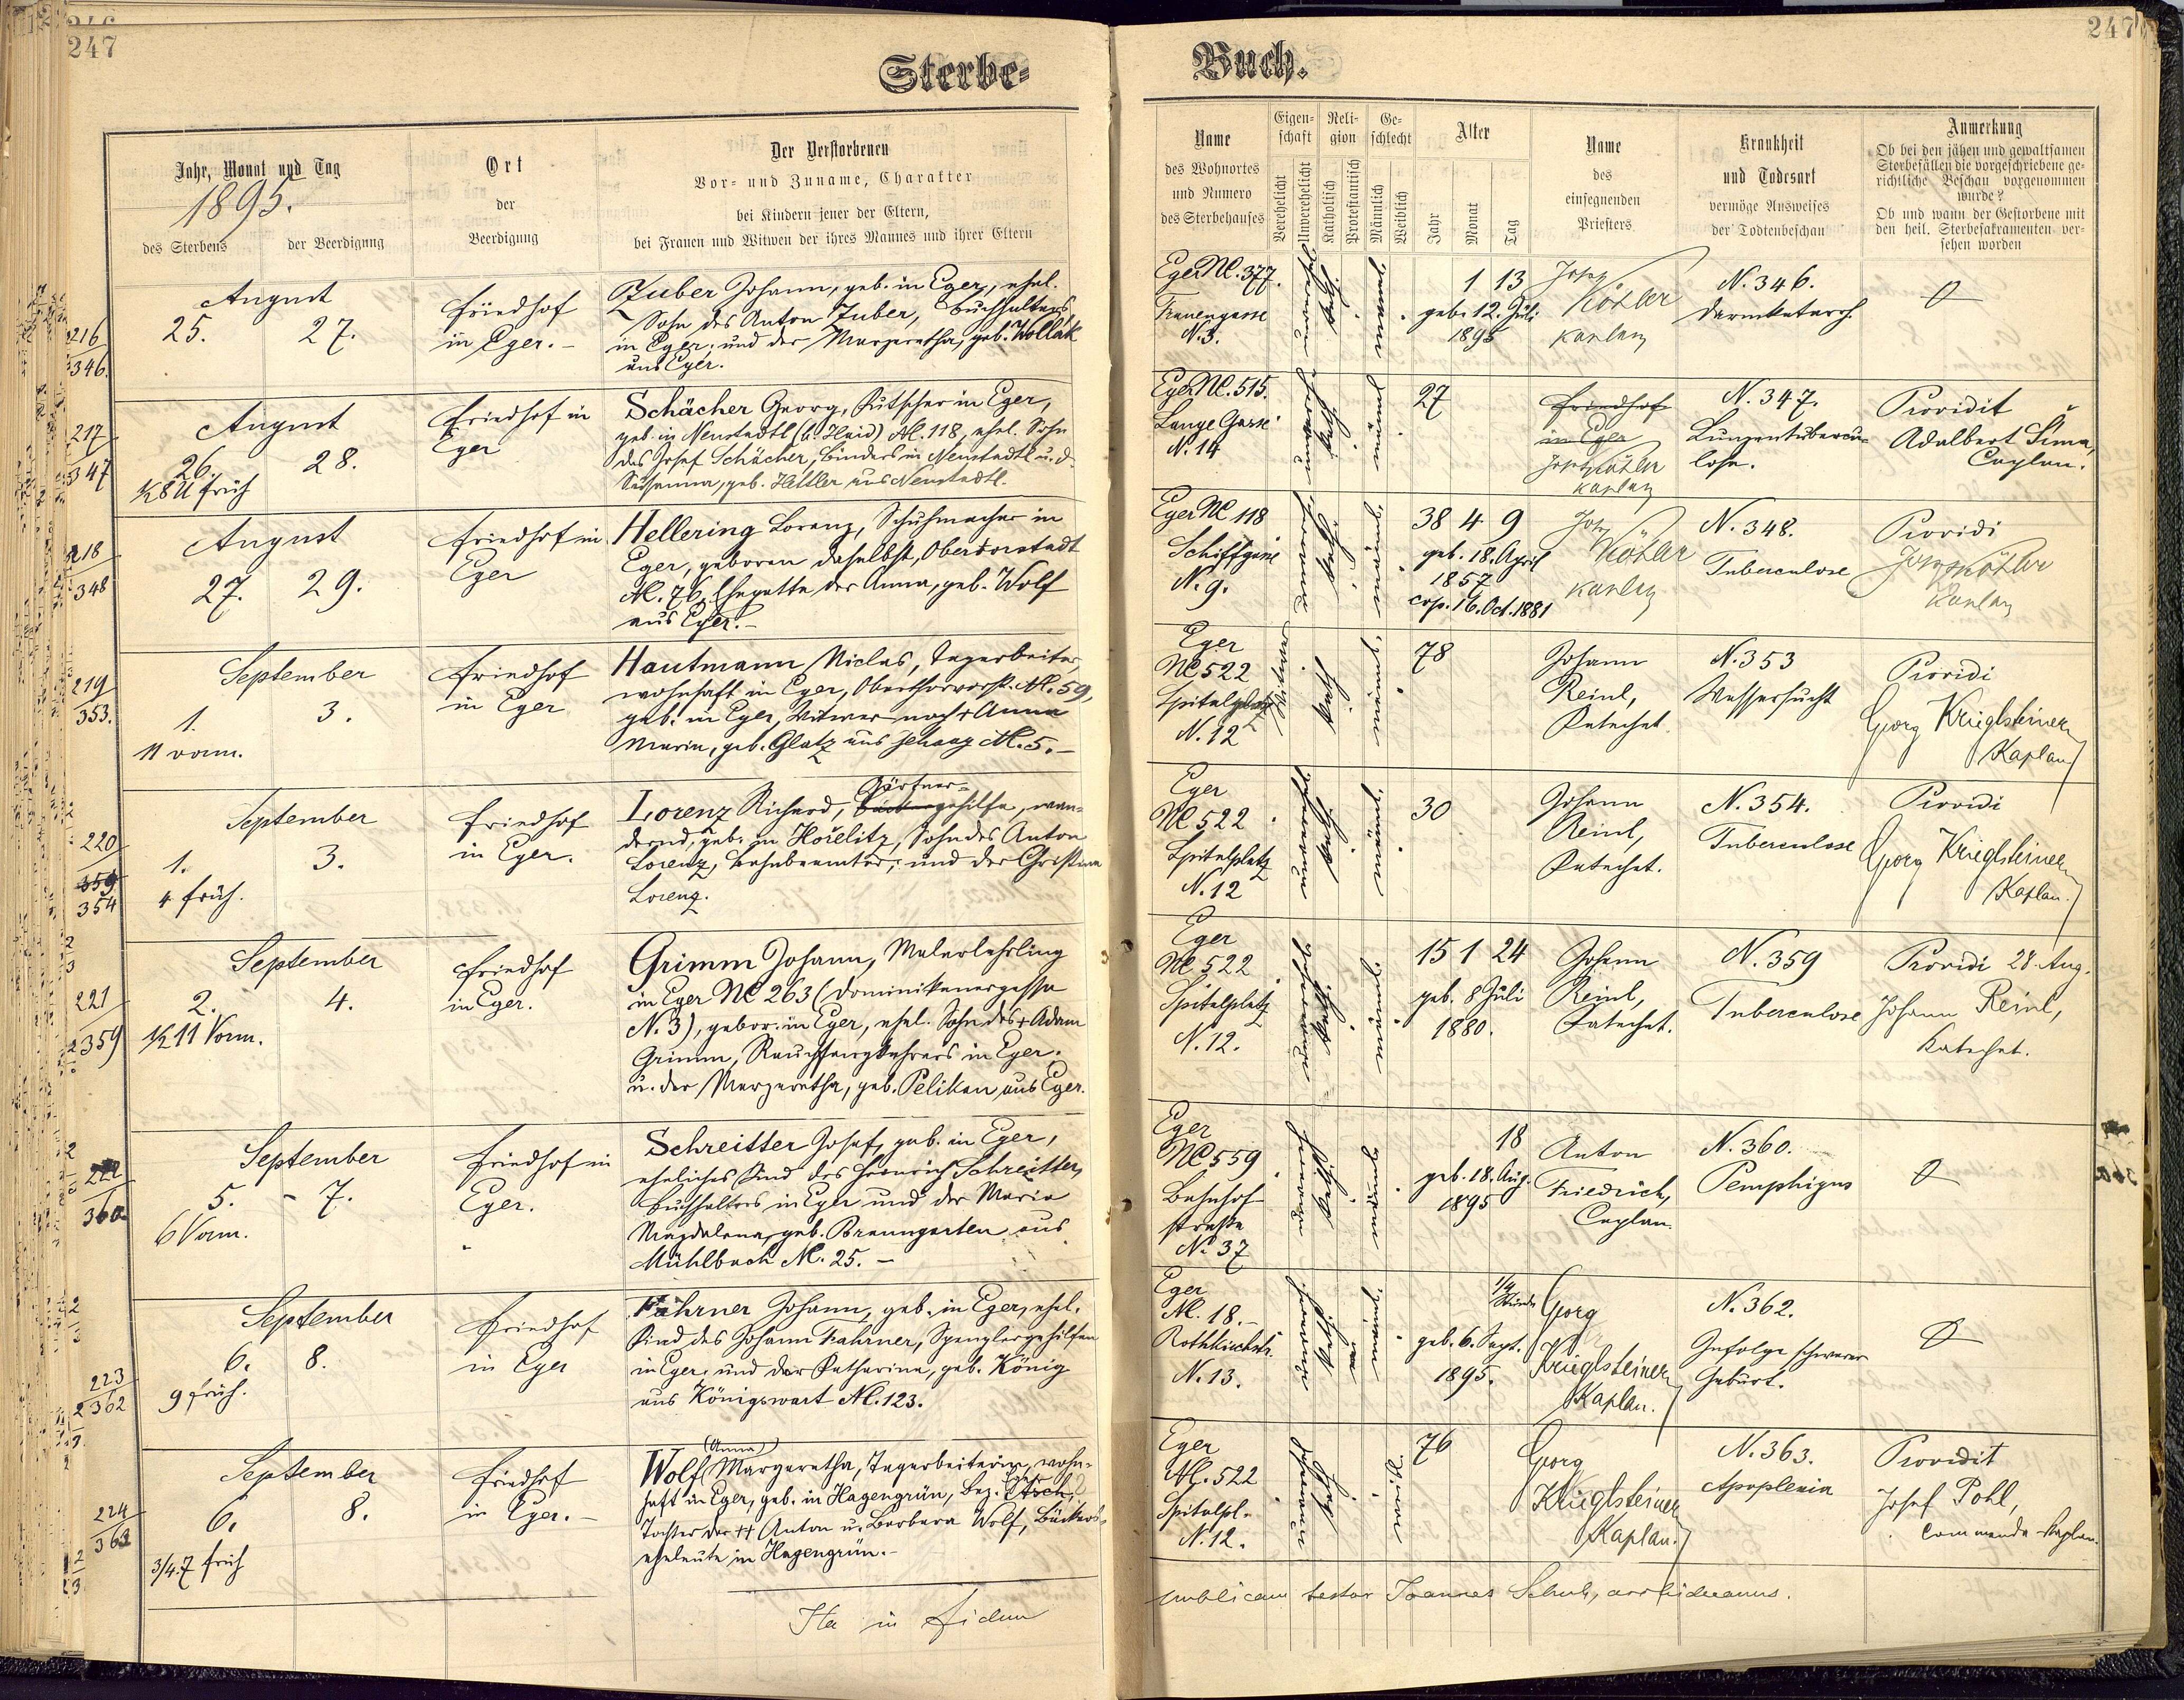 247
247
Sterbe-
Buch.
Jahr, Monat und Tag
1895.
des Sterbens
der Beerdigung
Ort
der
Beerdigung
Der Verstorbenen
Vor- und Zuname, Charakter
bei Kindern jener der Eltern,
bei Frauen und Witwen der ihres Mannes und ihrer Eltern
Name
des Wohnortes
und Numero
des Sterbehauses
Eigen-
schaft
Verehelicht
Unverehelicht
Reli-
gion
Katholisch
Protestantisch
Ge-
schlecht
Männlich
Weiblich
Alter
Jahr
Monat
Tag
Name
des
einsegnenden
Priesters
Krankheit
und Todesart
vermöge Ausweises
der Todtenbeschau
Anmerkung
Ob bei den jähen und gewaltsamen
Sterbefällen die vorgeschriebene ge-
richtliche Beschau vorgenommen
wurde?
Ob und wann der Gestorbene mit
den heil. Sterbesakramenten ver-
sehen worden
216
346.
August
25. 27.
Friedhof
in Eger.-
Zuber Johann, geb. in Eger, ehel.
Sohn des Anton Zuber, Buchhalters
in Eger, und der Margaretha, geb. Wollak
aus Eger.
Eger NC. 377.
Frauengasse
N. 3.
unverehel.
kath.
männl.
1 13
geb. 12. Juli
1895
Josef
Köhler
Kaplan
N. 346.
Darmkatarrh.
0
217
347
August
26. 28.
½8 U früh
Friedhof in
Eger
Schächer Georg, Kutscher in Eger,
geb. in Neustadtl (b. Haid) NC. 118, ehel. Sohn
des Josef Schächer, Binders in Neustadtl u. d.
Susanna, geb. Hettler aus Neustadtl.
Eger NC. 515.
Lange Gasse
N. 14
unvereh.
kath.
männl.
27
Friedhof
in Eger
Josef Köhler
Kaplan
N. 347.
Lungentubercu-
lose.
Providit
Adalbert Šima,
Caplan.
218
348
August
27. 29.
Friedhof in
Eger
Hellering Lorenz, Schuhmacher in
Eger, geboren daselbst, Obervorstadt
NC. 76, Ehegatte der Anna, geb. Wolf
aus Eger.-
Eger NC 118
Schiffgasse
N. 9.
kath.
männl.
38 4 9
geb. 18. April
1857
cop. 16. Oct. 1881
Josef
Köhler
Kaplan
N. 348.
Tuberculose
Providi
Josef Köhler
Kaplan
219
353.
September
1. 3.
11 vorm.
Friedhof
in Eger
Hautmann Niclas, Tagarbeiter,
wohnhaft in Eger, Oberthorvorst. NC. 59,
geb. in Eger, Witwer nach + Anna
Maria, geb. Glatz aus NC. 5.-
Eger
NC 522
Spitalplatz
N. 12
Witwer
kath.
männl.
78
Johann
Reinl,
Katechet.
N. 353
Wassersucht
Providi
Georg Krieglsteiner
Kaplan
220
359
354
September
1. 3.
4 früh.
Friedhof
in Eger.
Gärtner-
Lorenz Richard, gehilfe, wan-
dernd, geb. in Hořelitz, Sohn des Anton
Lorenz, Bahnbeamter, und der Christina
Lorenz.
Eger
NC 522
Spitalplatz
N. 12
unverehel.
kath.
männl.
30
Johann
Reinl,
Katechet.
N. 354.
Tuberculose
Providi
Georg Krieglsteiner
Kaplan.
221
359
September
2. 4.
½ 11 Vorm.
Friedhof
in Eger.
Grimm Johann, Malerlehrling
in Eger NC 263 (Dominikanergasse
N. 3), gebor. in Eger, ehel. Sohn des + Adam
Grimm, Rauchfangkehrers in Eger.
u. der Margaretha, geb. Pelikan aus Eger.
Eger
NC 522
Spitalplatz
N. 12.
unverehel.
kath.
männl.
15 1 24
geb. 8 Juli
1880.
Johann
Reinl,
Katechet.
N. 359
Tuberculose
Providi 28. Aug.
Johann Reinl,
Katechet.
222
360
September
5. - 7.
6 Vorm.
Friedhof in
Eger.
Schreitter Josef, geb. in Eger,
eheliches Kind des Heinrich Schreitter,
Buchhalters in Eger und der Maria
Magdalena, geb. Braungarten aus
Mühlbach NC. 25. -
Eger
NC 559
Bahnhof
straße
No 37
unverehel.
kath.
männl.
18
geb. 18. Aug.
1895
Anton
Friedrich,
Caplan.
N. 360.
Pemphigus
0
223
362
September
6. 8.
9 früh.
Friedhof
in Eger
Fahrner Johann, geb. in Eger, ehel.
Kind des Johann Fahrner, Spenglergehilfen
in Eger, und der Katharina, geb. König
aus Königswart NC. 123.
Eger
NC. 18.-
Rothkirchstr.
N. 13.
unverehel.
kath.
männl.
1/4
Stunde
geb. 6. Sept.
1895.
Georg
Krieglsteiner
Kaplan.
N. 362.
Infolge schwerer
Geburt.
0
224
363
September
6. 8.
3/4 7 früh
Friedhof
in Eger.-
(Anna)
Wolf Margaretha, Tagarbeiterin, wohn-
haft in Eger, geb. in Hagengrün, Bez. Asch,
Tochter der ++ Anton u. Barbara Wolf, Bäckers-
eheleute in Hagengrün.-
Eger
NC. 522
Spitalpl.
N. 12.
unverehel.
kath.
weibl.
76
Georg
Krieglsteiner
Kaplan.
N. 363.
Apoplexia
Providit
Josef Pohl,
Commenda-Kaplan.
Ita in fidem
publicam testor Joannes Schuh, archidecanus.